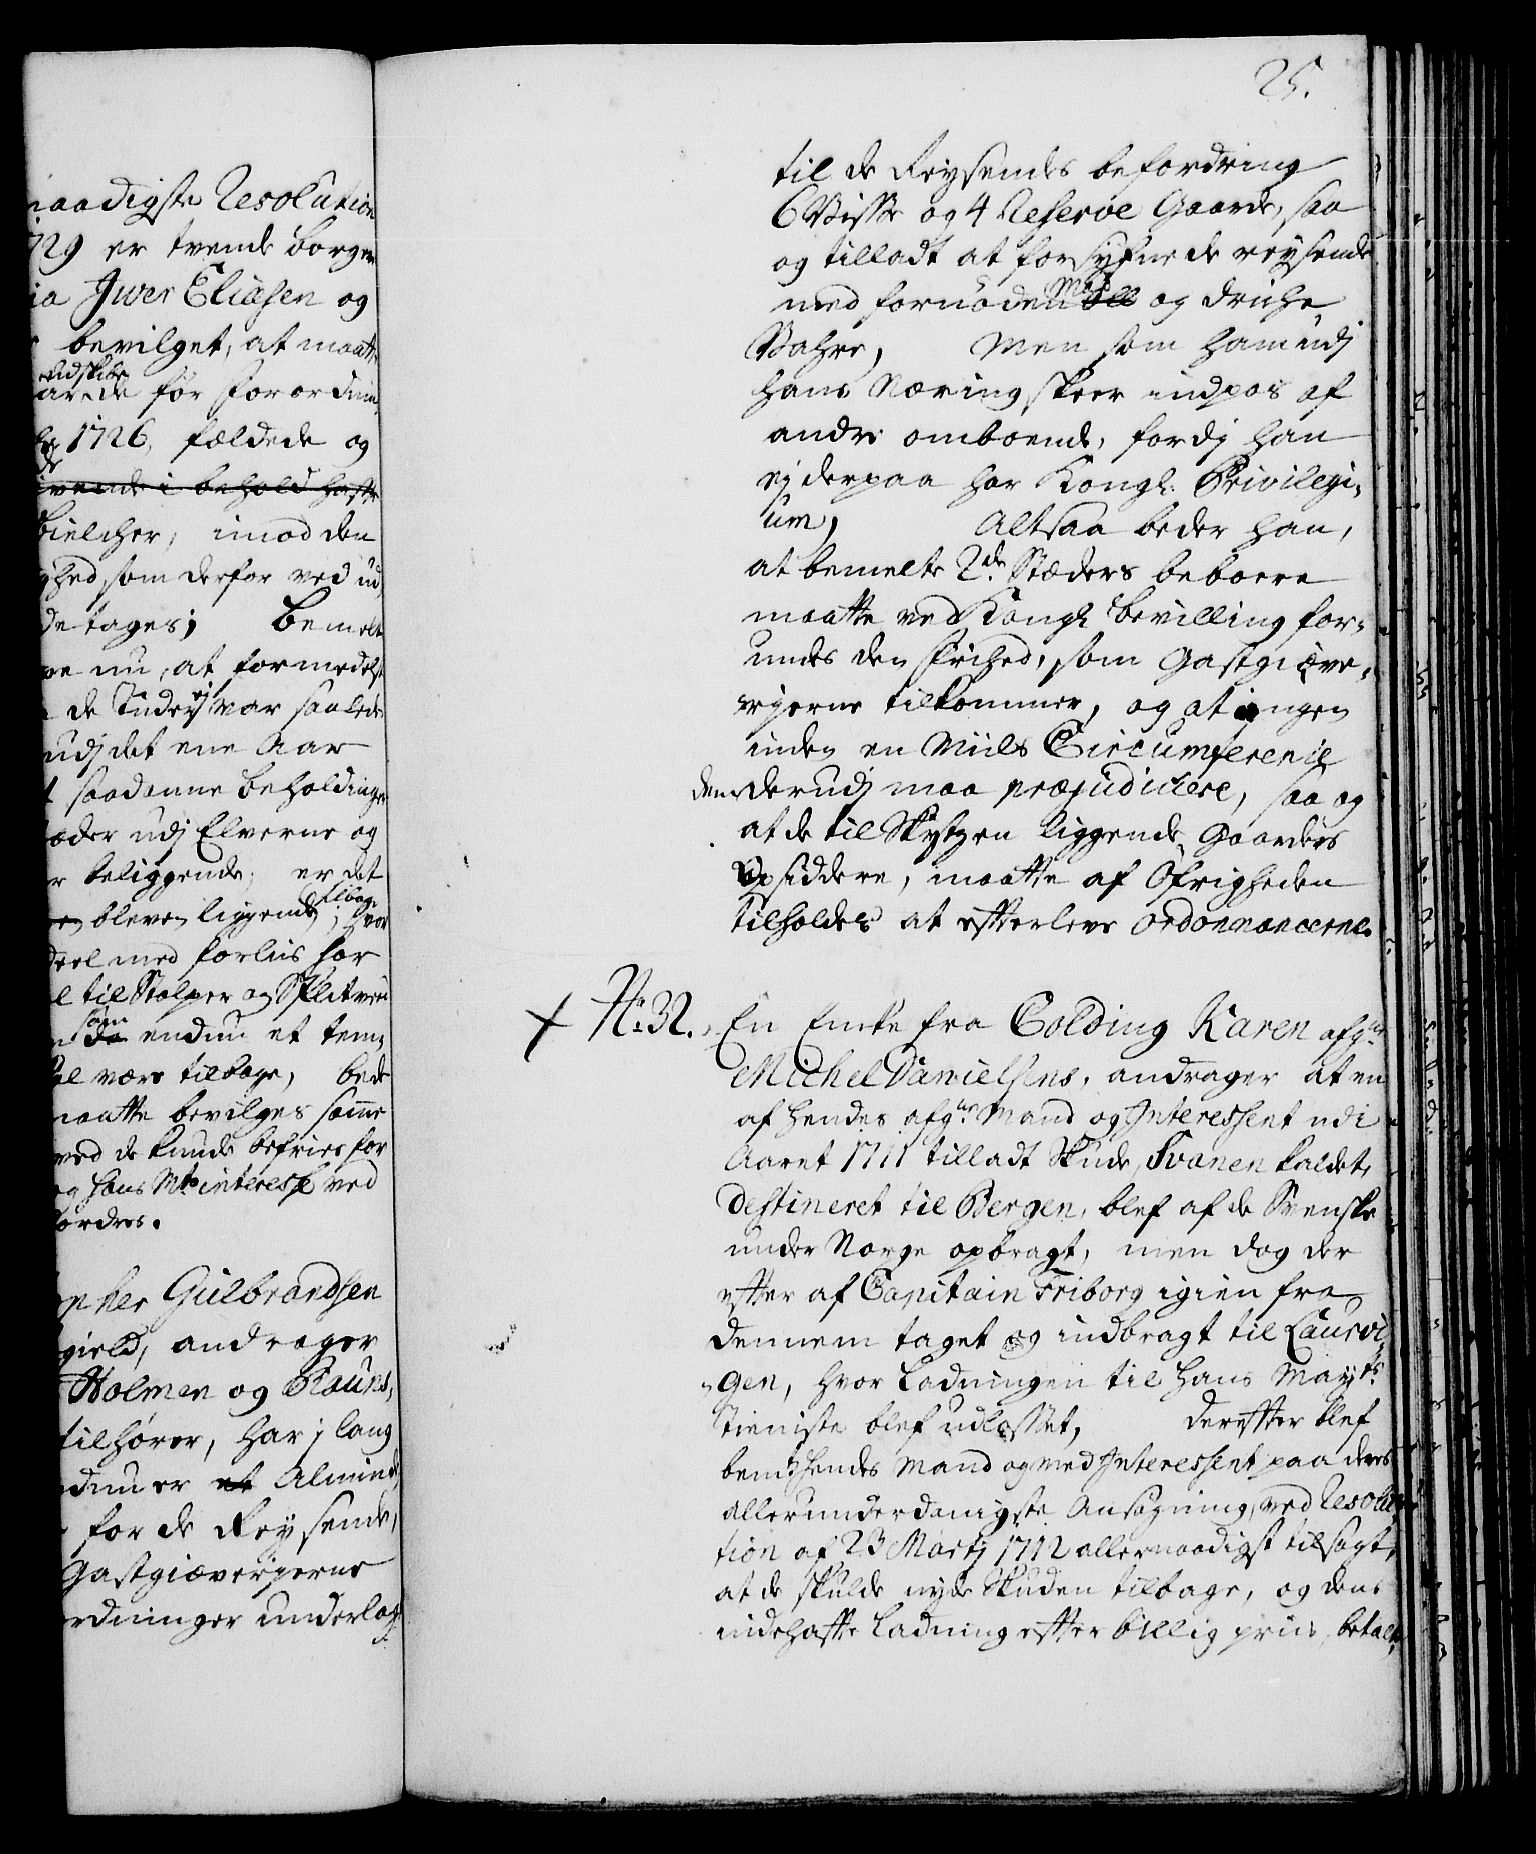 naadigste Resolution
1729 er tvende borgere
ia Jwer Eliasen og
bevilget, at maatte
udskibe
de för Forordnin
1726, fældede og
vende i behold hafte
bielcher, imod den
ghed som derfor ved ud
detages; Bemelte
nu, at formedelst
de Tider ej var saalede
udj det ene Aar
saadanne beholdinger
öder udj Elverne og
beliggende, er det
tilbage
bleven liggende, hvor
deel med forliis har
til Stolper og Splitved
som
endnu et tem
være tilbage, bede
maatte bevilges samme
ved de kunde befries for
og Hans Mts interesse ved
fordres.
Gulbrandsen
gield, andrager
Holmen og Rauns,
tilhörer, har j lang
endnu er et Alminde
for de Reysende,
Gastgiæverijerne
ordninger underlagt
25.
til de Reysendes befordring
6 Visse og 4 Reserve Gaarde, saa
og tilladt at forsyfne de reysende
Mad
med fornöden Øll og driche
Vahre, Men som ham udj
hans Næring skeer indpas af
andre omboende, fordj han
ej derpaa har Kongl. Privilegi,
um, Altsaa beder han,
at bemelte 2de Stæders beboere
maatte ved Kongl bevilling for,
undes den Frihed, som Gastgiæve,
rijerne tilkommer, og at ingen
inden en Miils Circumference
dem derudj maa præjudicere, saa og
at de til Skydtzen liggende Gaarders
Opsiddere, maatte af Öfrigheden
tilholdes at efterleve Ordonnancerne.
+ No: 32. En Encke fra Colding Karen afgne
Michel Danielsens, andrager at en
af hendes afgne Mand og Interessent udi
Aaret 1711 tilladt Skude, Svanen kaldet,
destineret til Bergen, blef af de Svenske
under Norge opbragt, men dog der
efter af Capitain Friborg igien fra
dennem taget og indbragt til Laurvi
gen, hvor Ladningen til Hans Mayts
Tieniste blef udlosset, derefter blef
bemte Hendes Mand og med Interessent paa deres
allerunderdanigste Ansögning, ved Resolu
tion af 23 Martj 1712 allernaadigst tilsagt,
at de skulde nyde Skuden tilbage, og dens
indehafte Ladning efter billig priis, betalt,